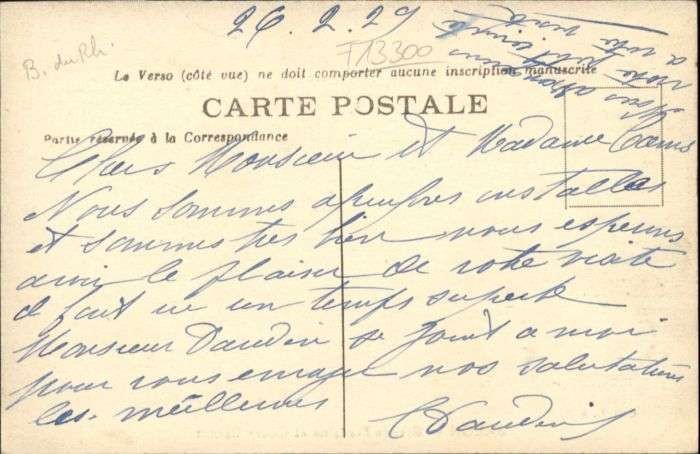 26.2.29
B. du Rh.
T13300
Le Verso (côté vue) ne doit comporter aucune inscription manuscrite
CARTE POSTALE
Partie réservée à la Correspondance
Chers Monsieur et Madame
Nous sommes installes
et sommes tres bien nous esperons
avoir le plaisir de votre visite
il fait ici un temps superbe
Monsieur Daudin se joint a moi
pour vous envoyer nos salutations
les meilleures
Daudin